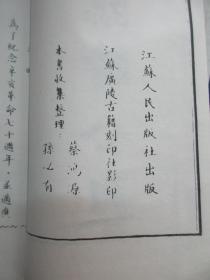 江蘇人民出版社出版
江蘇廣陵古籍刻印社影印
本書收集整理：
蔡
孫
為了紀念辛亥革命七十週年，並適應